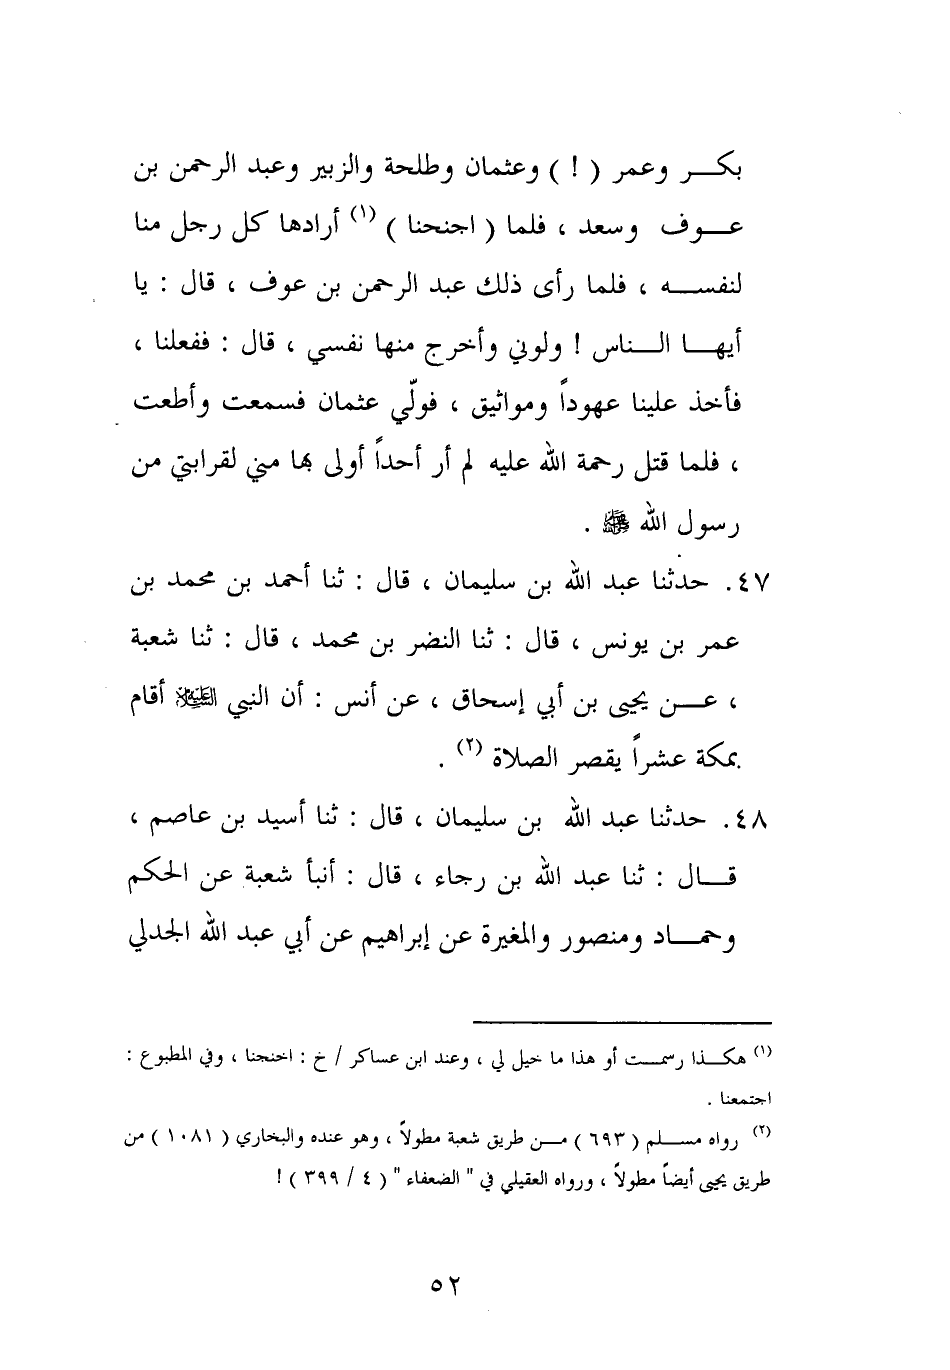 بكـــر وعمر ( ! ) وعثمان وطلحة والزبير وعبد الرحمن بن
عـــوف وسعد ، فلما ( اجنحنا ) (١) أرادها كل رجل منا
لنفســـه ، فلما رأى ذلك عبد الرحمن بن عوف ، قال : يا
أيهـــا النـــاس ! ولوني وأخرج منها نفسي ، قال : ففعلنا ،
فأخذ علينا عهوداً ومواثيق ، فولّي عثمان فسمعت وأطعت
، فلما قتل رحمة الله عليه لم أر أحداً أولى بها مني لقرابتي من
رسول الله ﷺ .
٤٧. حدثنا عبد الله بن سليمان ، قال : ثنا أحمد بن محمد بن
عمر بن يونس ، قال : ثنا النضر بن محمد ، قال : ثنا شعبة
، عـــن يحيى بن أبي إسحاق ، عن أنس : أن النبي العَلَيْهِ أقام
بمكة عشراً يقصر الصلاة (٢) .
٤٨. حدثنا عبد الله بن سليمان ، قال : ثنا أسيد بن عاصم ،
قـــال : ثنا عبد الله بن رجاء ، قال : أنبأ شعبة عن الحكم
وحمـــاد ومنصور والمغيرة عن إبراهيم عن أبي عبد الله الجدلي
(١) هكـــذا رسمـــت أو هذا ما خيل لي ، وعند ابن عساكر / خ : احنحنا ، وفي المطبوع :
اجتمعنا .
(٢) رواه مســـلم ( ٦٩٣ ) مـــن طريق شعبة مطولاً ، وهو عنده والبخاري ( ١٠٨١ ) من
طريق يحيى أيضاً مطولاً ، ورواه العقيلي في " الضعفاء " ( ٤ / ٣٩٩ ) !
٥٢